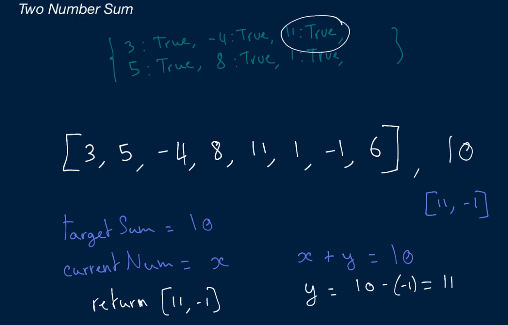 Two Number Sum
{ 3: True, -4: True, 11: True,
5: True, 8: True, 1: True, }
[3, 5, -4, 8, 11, 1, -1, 6], 10
[11, -1]
targetSum = 10
currentNum = x
x + y = 10
y = 10 - (-1) = 11
return [11, -1]